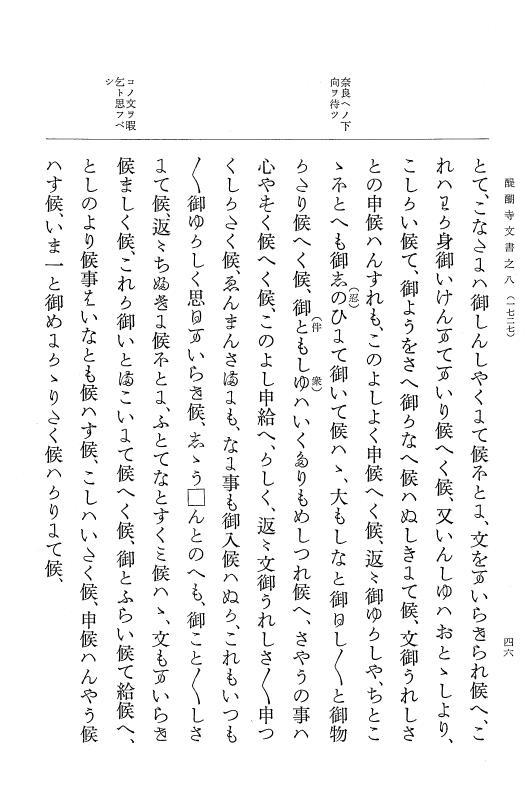 醍醐寺文書之八(一七二七)
四六
奈良ヘノ下
向ヲ待ツ
コノ文ヲ暇
乞ト思フベ
シ
とて、こなたにハ御しんしやくにて候ほとに、文をまいらせられ候へ、こ
れハわか身御いけんまてまいり候へく候、又いんしゆハおとゝしより、
こしかい候て、御ようをさへ御かなへ候ハぬしきにて候、文御うれしさ
との申候ハんすれも、このよしよく申候へく候、返〻御ゆかしや、ちとこ
ゝほとへも御しのひ(忍)にて御いて候ハゝ、大もしなと御ひし〳〵と御物
かたり候へく候、御ともしゆ(伴衆)ハいくたりもめしつれ候へ、さやうの事ハ
心やすく候へく候、このよし申給へ、かしく、返〻文御うれしさ〳〵申つ
くしかたく候、ゑんまんさまにも、なに事も御入候ハぬか、これもいつも
〳〵御ゆかしく思ひまいらせ候、しゝう□んとのへも、御こと〳〵しさ
にて候、返〻ちきに候ほとに、ふとてなとすくミ候ハゝ、文もまいらせ
候ましく候、これか御いとまこいにて候へく候、御とふらい候て給候へ、
としのより候事はいなとも候ハす候、こしハいたく候、申候ハんやう候
ハす候、いま一と御めにかゝりたく候ハかりにて候、